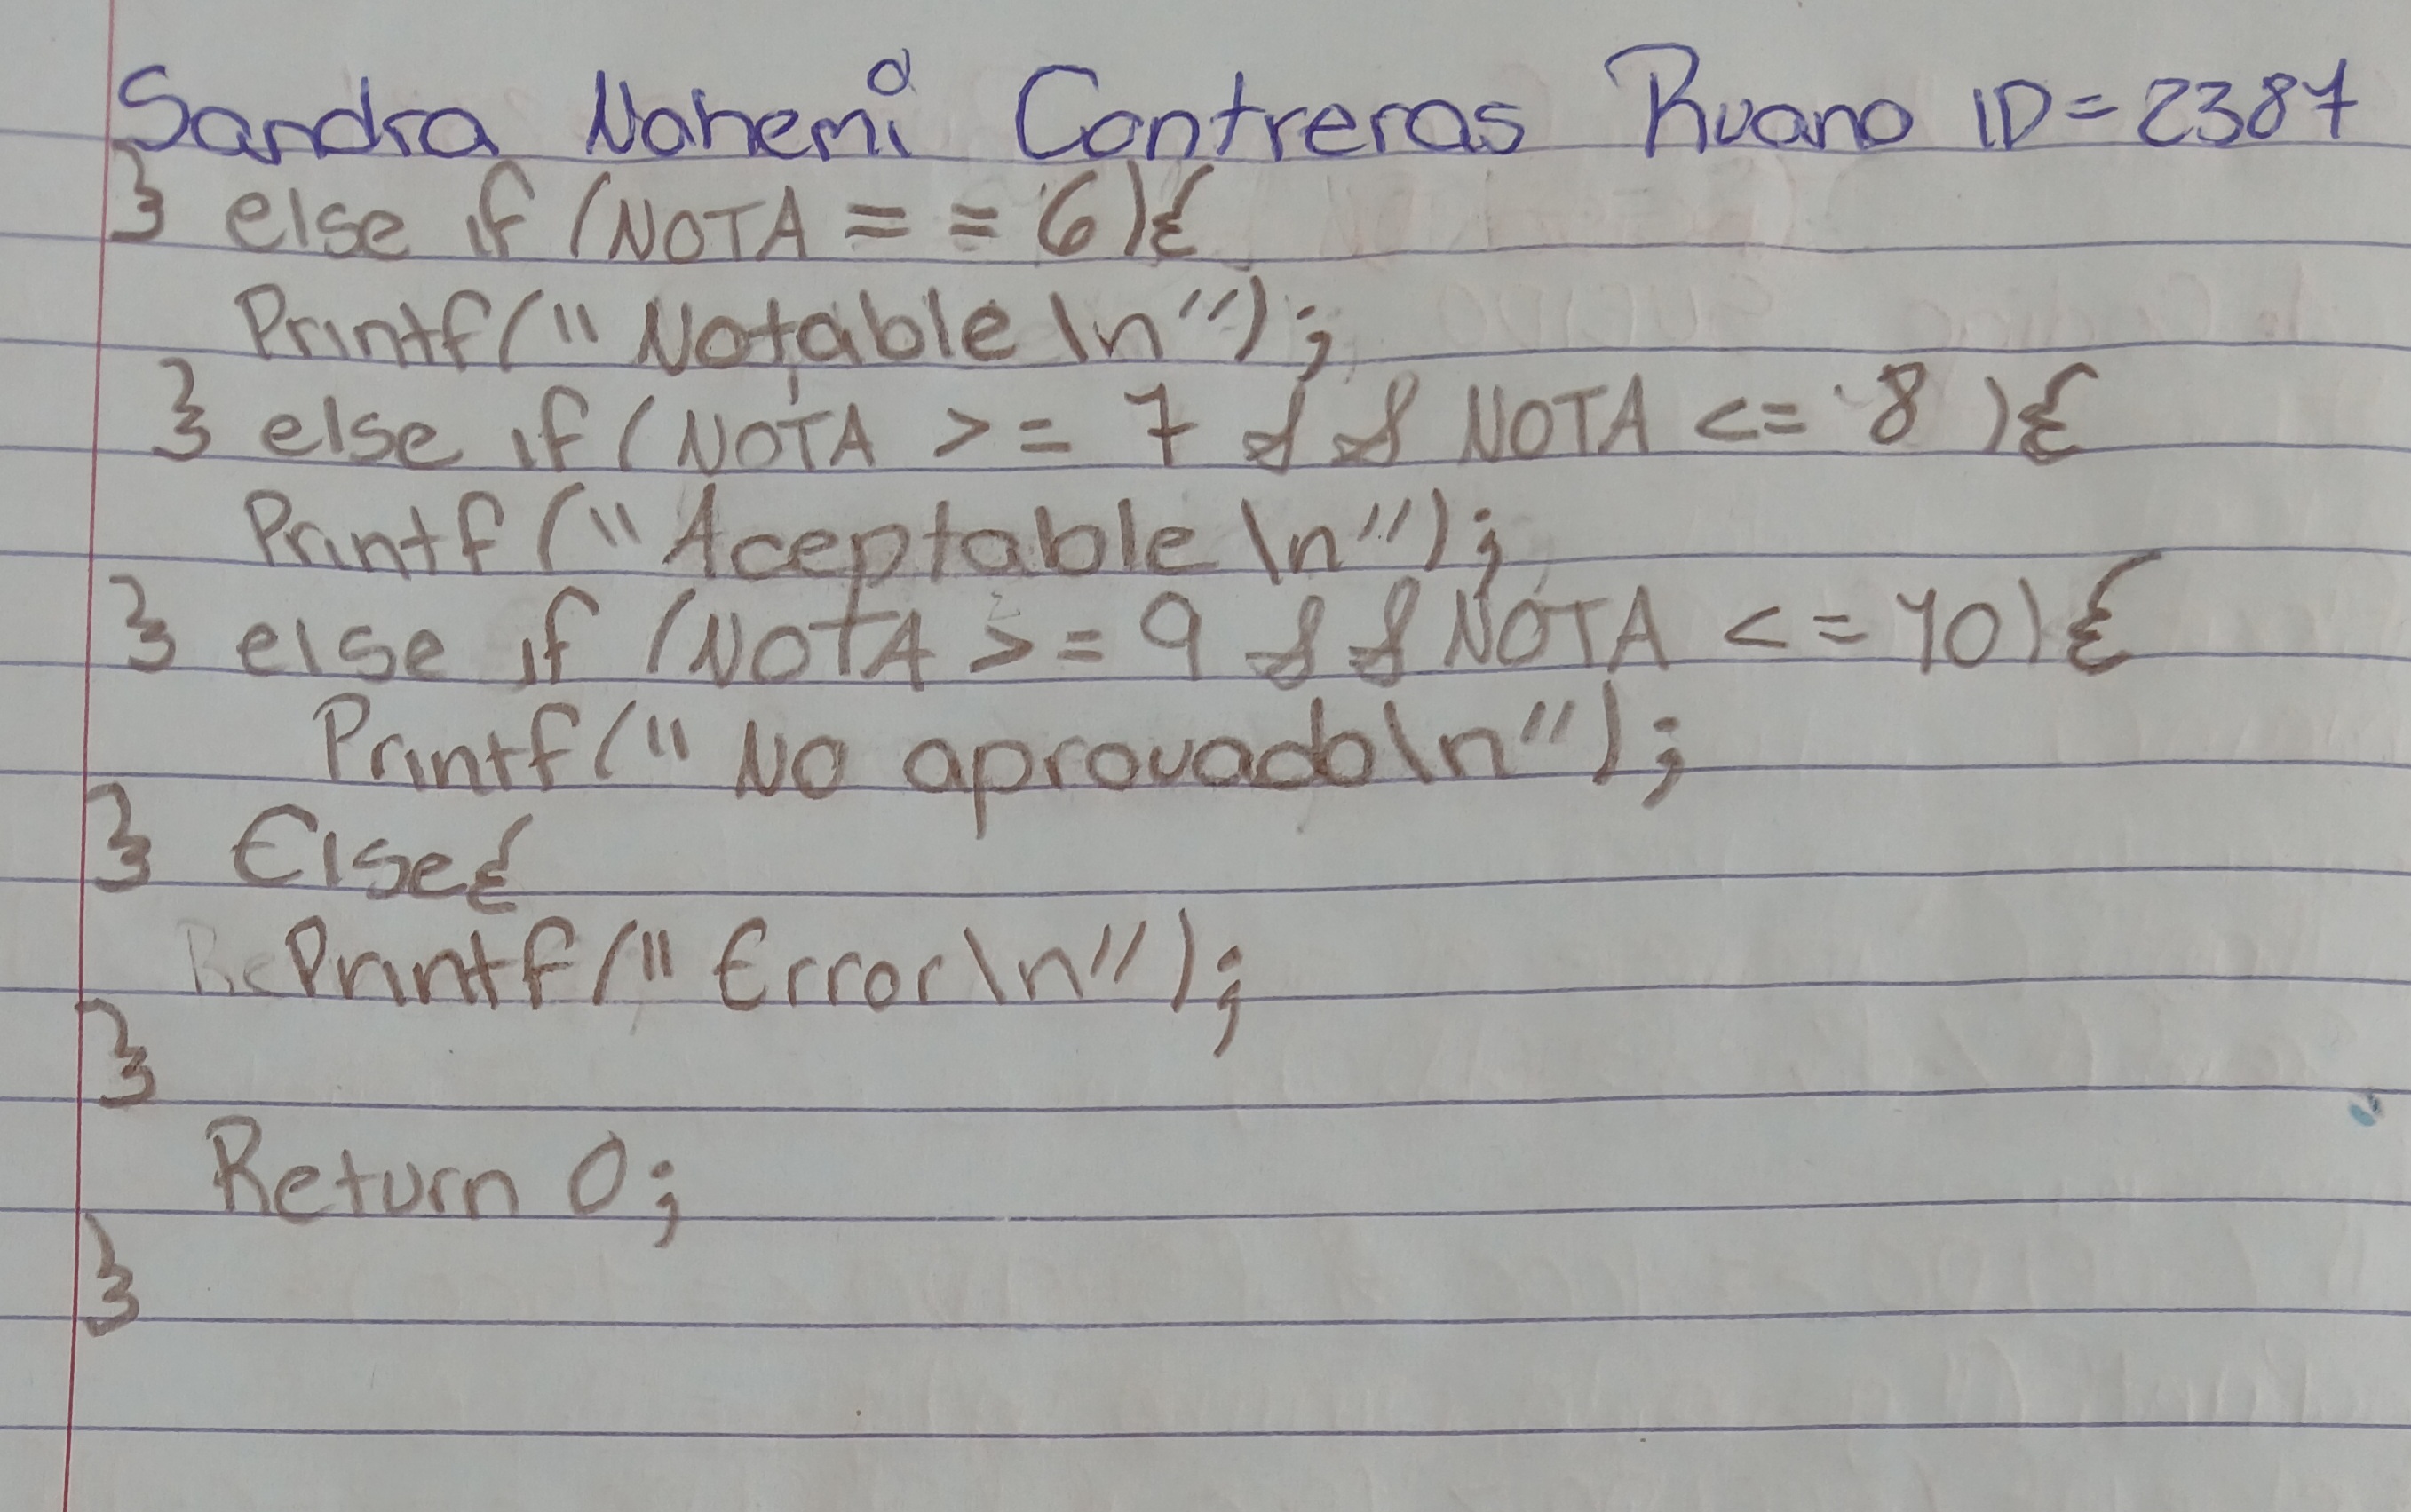 Sandra Nohemí Contreras Ruano ID=2387
} else if (NOTA = = 6){
Printf("Notable \n");
} else if (NOTA >= 7 && NOTA <= 8 ){
Printf("Aceptable \n");
} else if (NOTA >= 9 && NOTA <= 10){
Printf("No aprovado\n");
} Else{
Printf("Error\n");
}
Return 0;
}